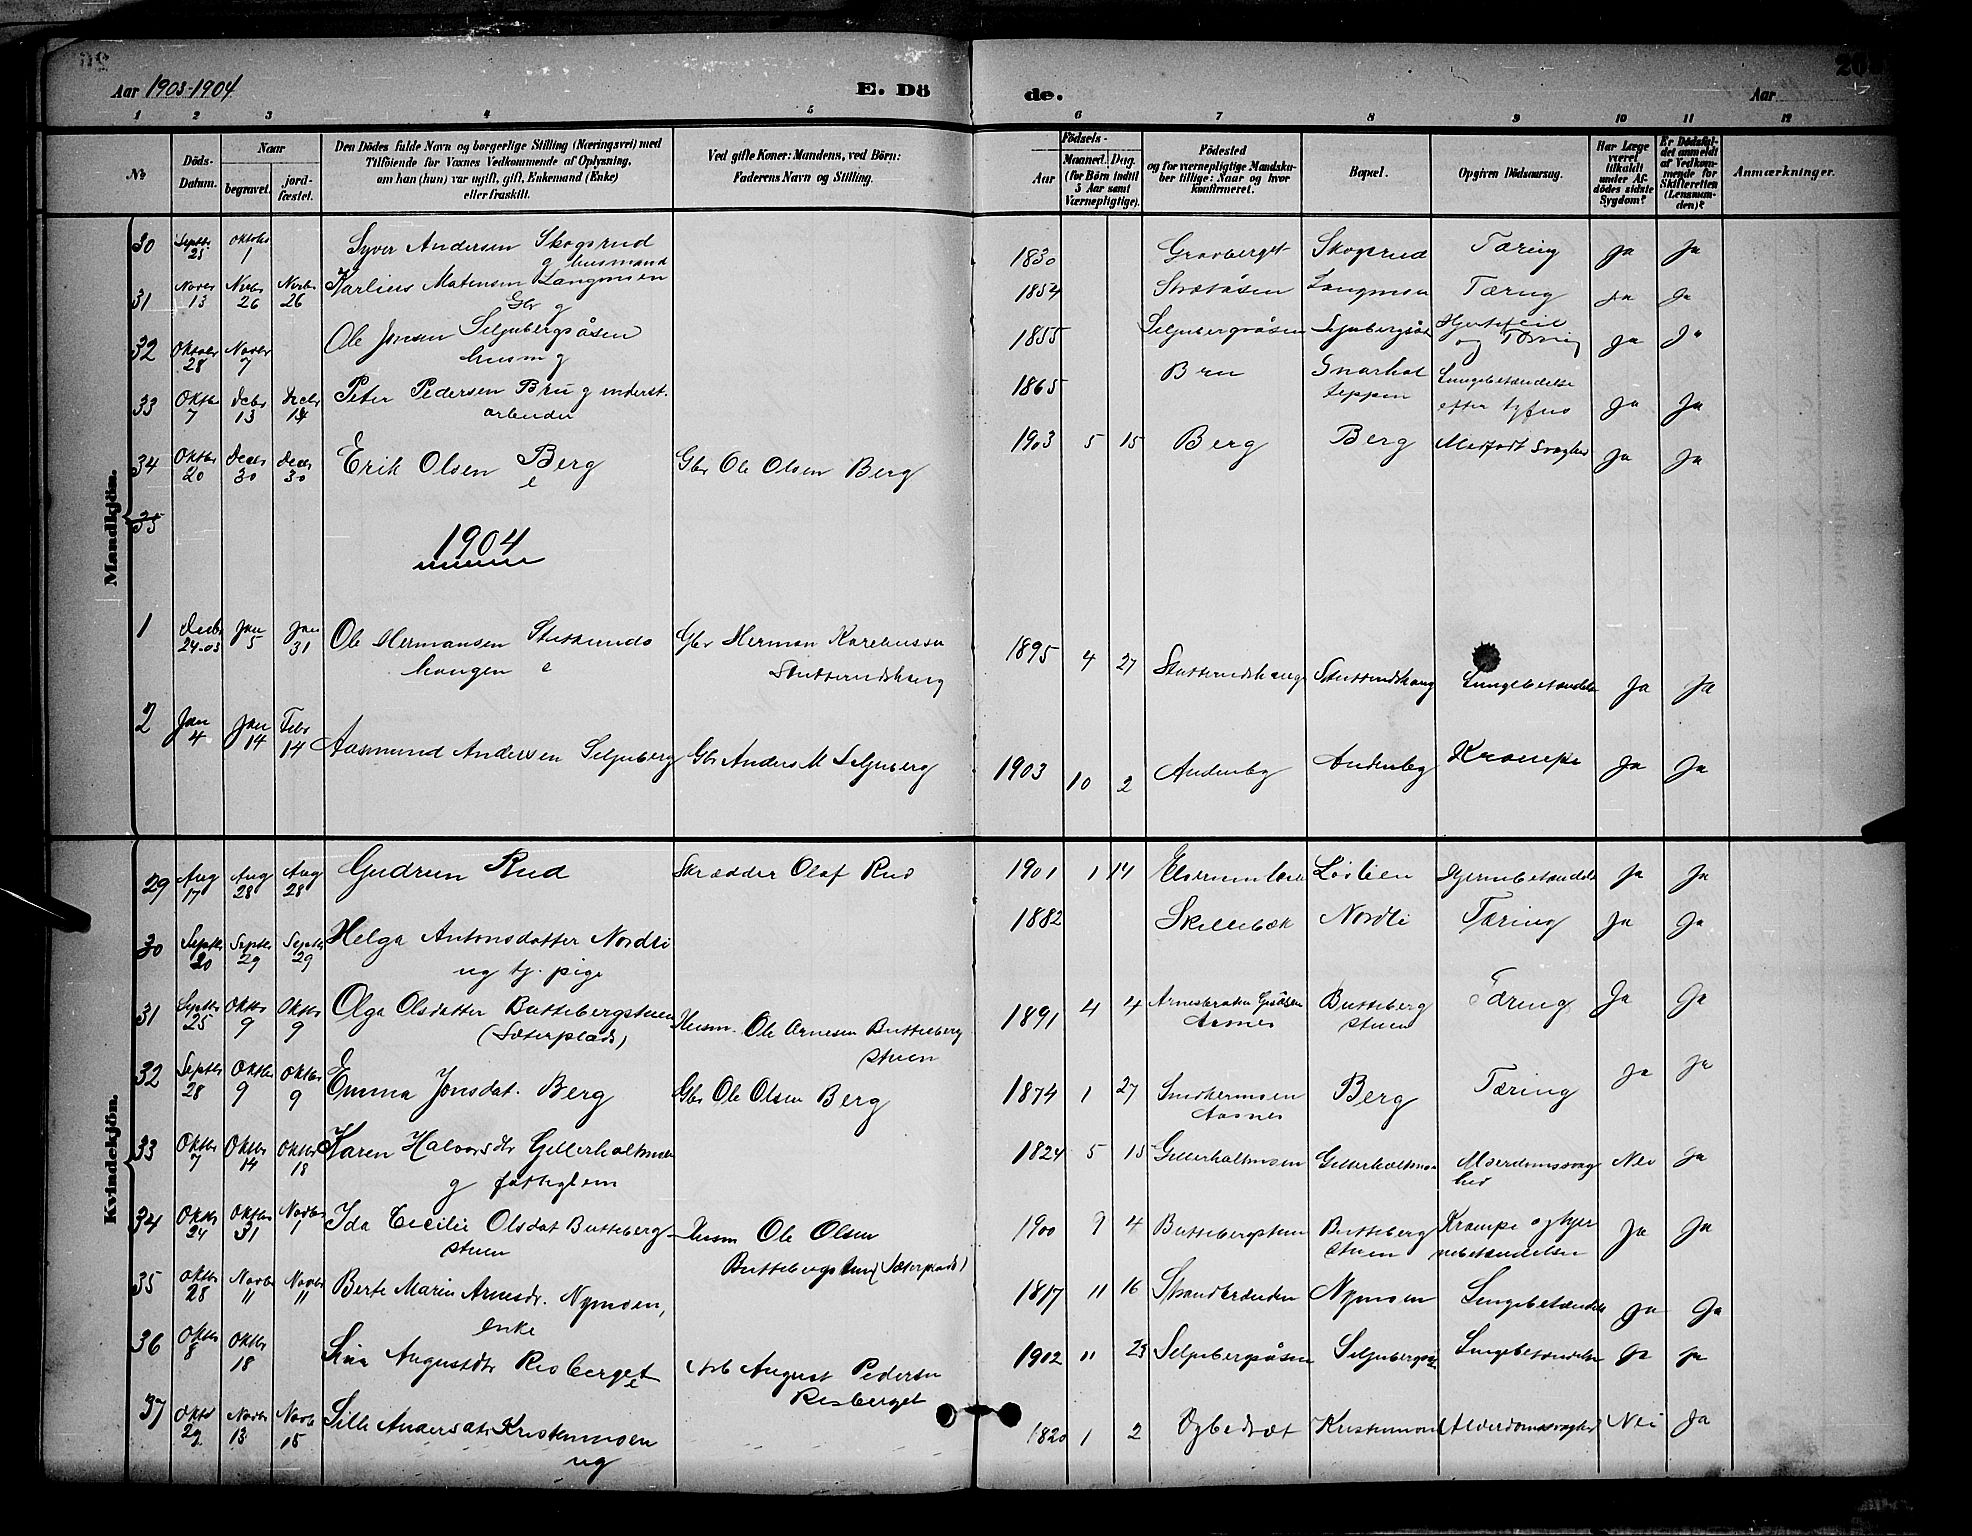 Aar 1903-1904
E. Dö
de.
Aar
1 2 3 4 5 6 7 8 9 10 11 12
No
Döds-Datum.
Naar
begravet.
jord-fæstet.
Den Dödes fulde Navn og borgerlige Stilling (Næringsvei) med
Tilföiende for Voxnes Vedkommende af Oplysning,
om han (hun) var ugift, gift, Enkemand (Enke)
eller fraskilt.
Ved gifte Koner: Mandens, ved Börn:
Faderens Navn og Stilling.
Födsels-
Aar
Maaned. Dag.
(for Börn indtil
5 Aar samt
Værnepligtige).
Födested
og for værnepligtige Mandska-
ber tillige: Naar og hvor
konfirmeret.
Bopæl.
Opgiven Dödsaarsag.
Har Læge
været
tilkaldt
under Af-
dödes sidste
Sygdom?
Er Dödsfal-
det anmeldt
af Vedkom-
mende for
Skifteretten
(Lensman-
den)?
Anmærkninger.
Mandkjön.
30 Septbr 25 Oktober 1 Syver Andersen Skogsrud 1830 Gravberget Skogsrud Tæring Ja Ja
g husmand
31 Novbr 13 Novbr 26 Novbr 26 Karlius Matensen Langmoen 1854 Langmoen Tæring Ja Ja
Gbr g
32 Oktober 28 Novbr 7 Ole Jonsen Seljubergsåsen 1855 Seljubergsåsen Seljubergsås Hjertefeil
husm g og Tæring Ja Ja
33 Oktbr 7 Debr 13 Decbr 14 Peter Pedersen Bru g underst. 1865 Bru Snarhol Lungebetændelse
arbeider teppen efter tyfus Ja Ja
34 Oktbr 20 Decbr 30 Decbr 30 Erik Olsen Berg Gbr Ole Olsen Berg 1903 5 15 Berg Berg Medfødt Svaghed Ja Ja
e
35
1904
1 Decbr 24-03 Jan 5 Jan 31 Ole Hermansen Stutteruds Gbr Herman Kareliussen 1895 4 27 Stutterudshaug Stutterudshaug Lungebetændelse Ja Ja
haugen e Stutterudshaug
2 Jan 4 Jan 14 Febr 14 Aasmund Andersen Seljuberg Gbr Anders M Seljuberg 1903 10 2 Anderby Anderby Krampe Ja Ja
Kvindekjön.
29 Aug 17 Aug 28 Aug 28 Gudrun Rud Skrædder Olaf Rud 1901 1 14 Løvlien Hjernebetændelse Ja Ja
30 Septbr 20 Septbr 29 Septbr 29 Helga Antonsdatter Nordli 1882 Skillebæk Nordli Tæring Ja Ja
ug tj. pige
31 Septbr 25 Oktbr 9 Oktbr 9 Olga Olsdatter Buttebergstuen Husm. Ole Arnesen Butteberg 1891 4 4 Butteberg Tæring Ja Ja
(Sæterplads) stuen Aasnes stuen
32 Septbr 28 Oktbr 9 Oktbr 9 Emma Jonsdat. Berg Gbr Ole Olsen Berg 1874 1 27 Smedhermoen Berg Tæring Ja Ja
Aasnes
33 Oktbr 7 Oktbr 14 Oktbr 18 Karen Halvorsdtr Gillerholtmoen 1824 5 15 Gillerholtmoen Gillerholtmoe Alderdomssvag Nei Ja
g fattiglem hed
34 Oktbr 24 Oktbr 31 Novbr 1 Ida Cecilie Olsdat Butteberg- Husm Ole Olsen 1900 9 4 Buttebergstuen Butteberg Krampe og hjer Ja Ja
stuen Buttebergstuen (Sæterplads) stuen nebetændelse
35 Oktbr 28 Novbr 11 Novbr 11 Berte Marie Arnesdr. Nymoen, 1817 11 16 Strandbrænden Nymoen Lungebetændelse Ja Ja
enke
36 Oktbr 8 Oktbr 18 Lina Augustdtr Risberget Arb August Pedersen 1902 11 23 Seljubergsåsen Seljubergsås Lungebetændelse Ja Ja
e Risberget
37 Oktb 29 Novbr 13 Novb 15 Sille Andersdtr Kristenmoen 1820 1 2 Kristenmoen Alderdomssvaghed Nei Ja
ug